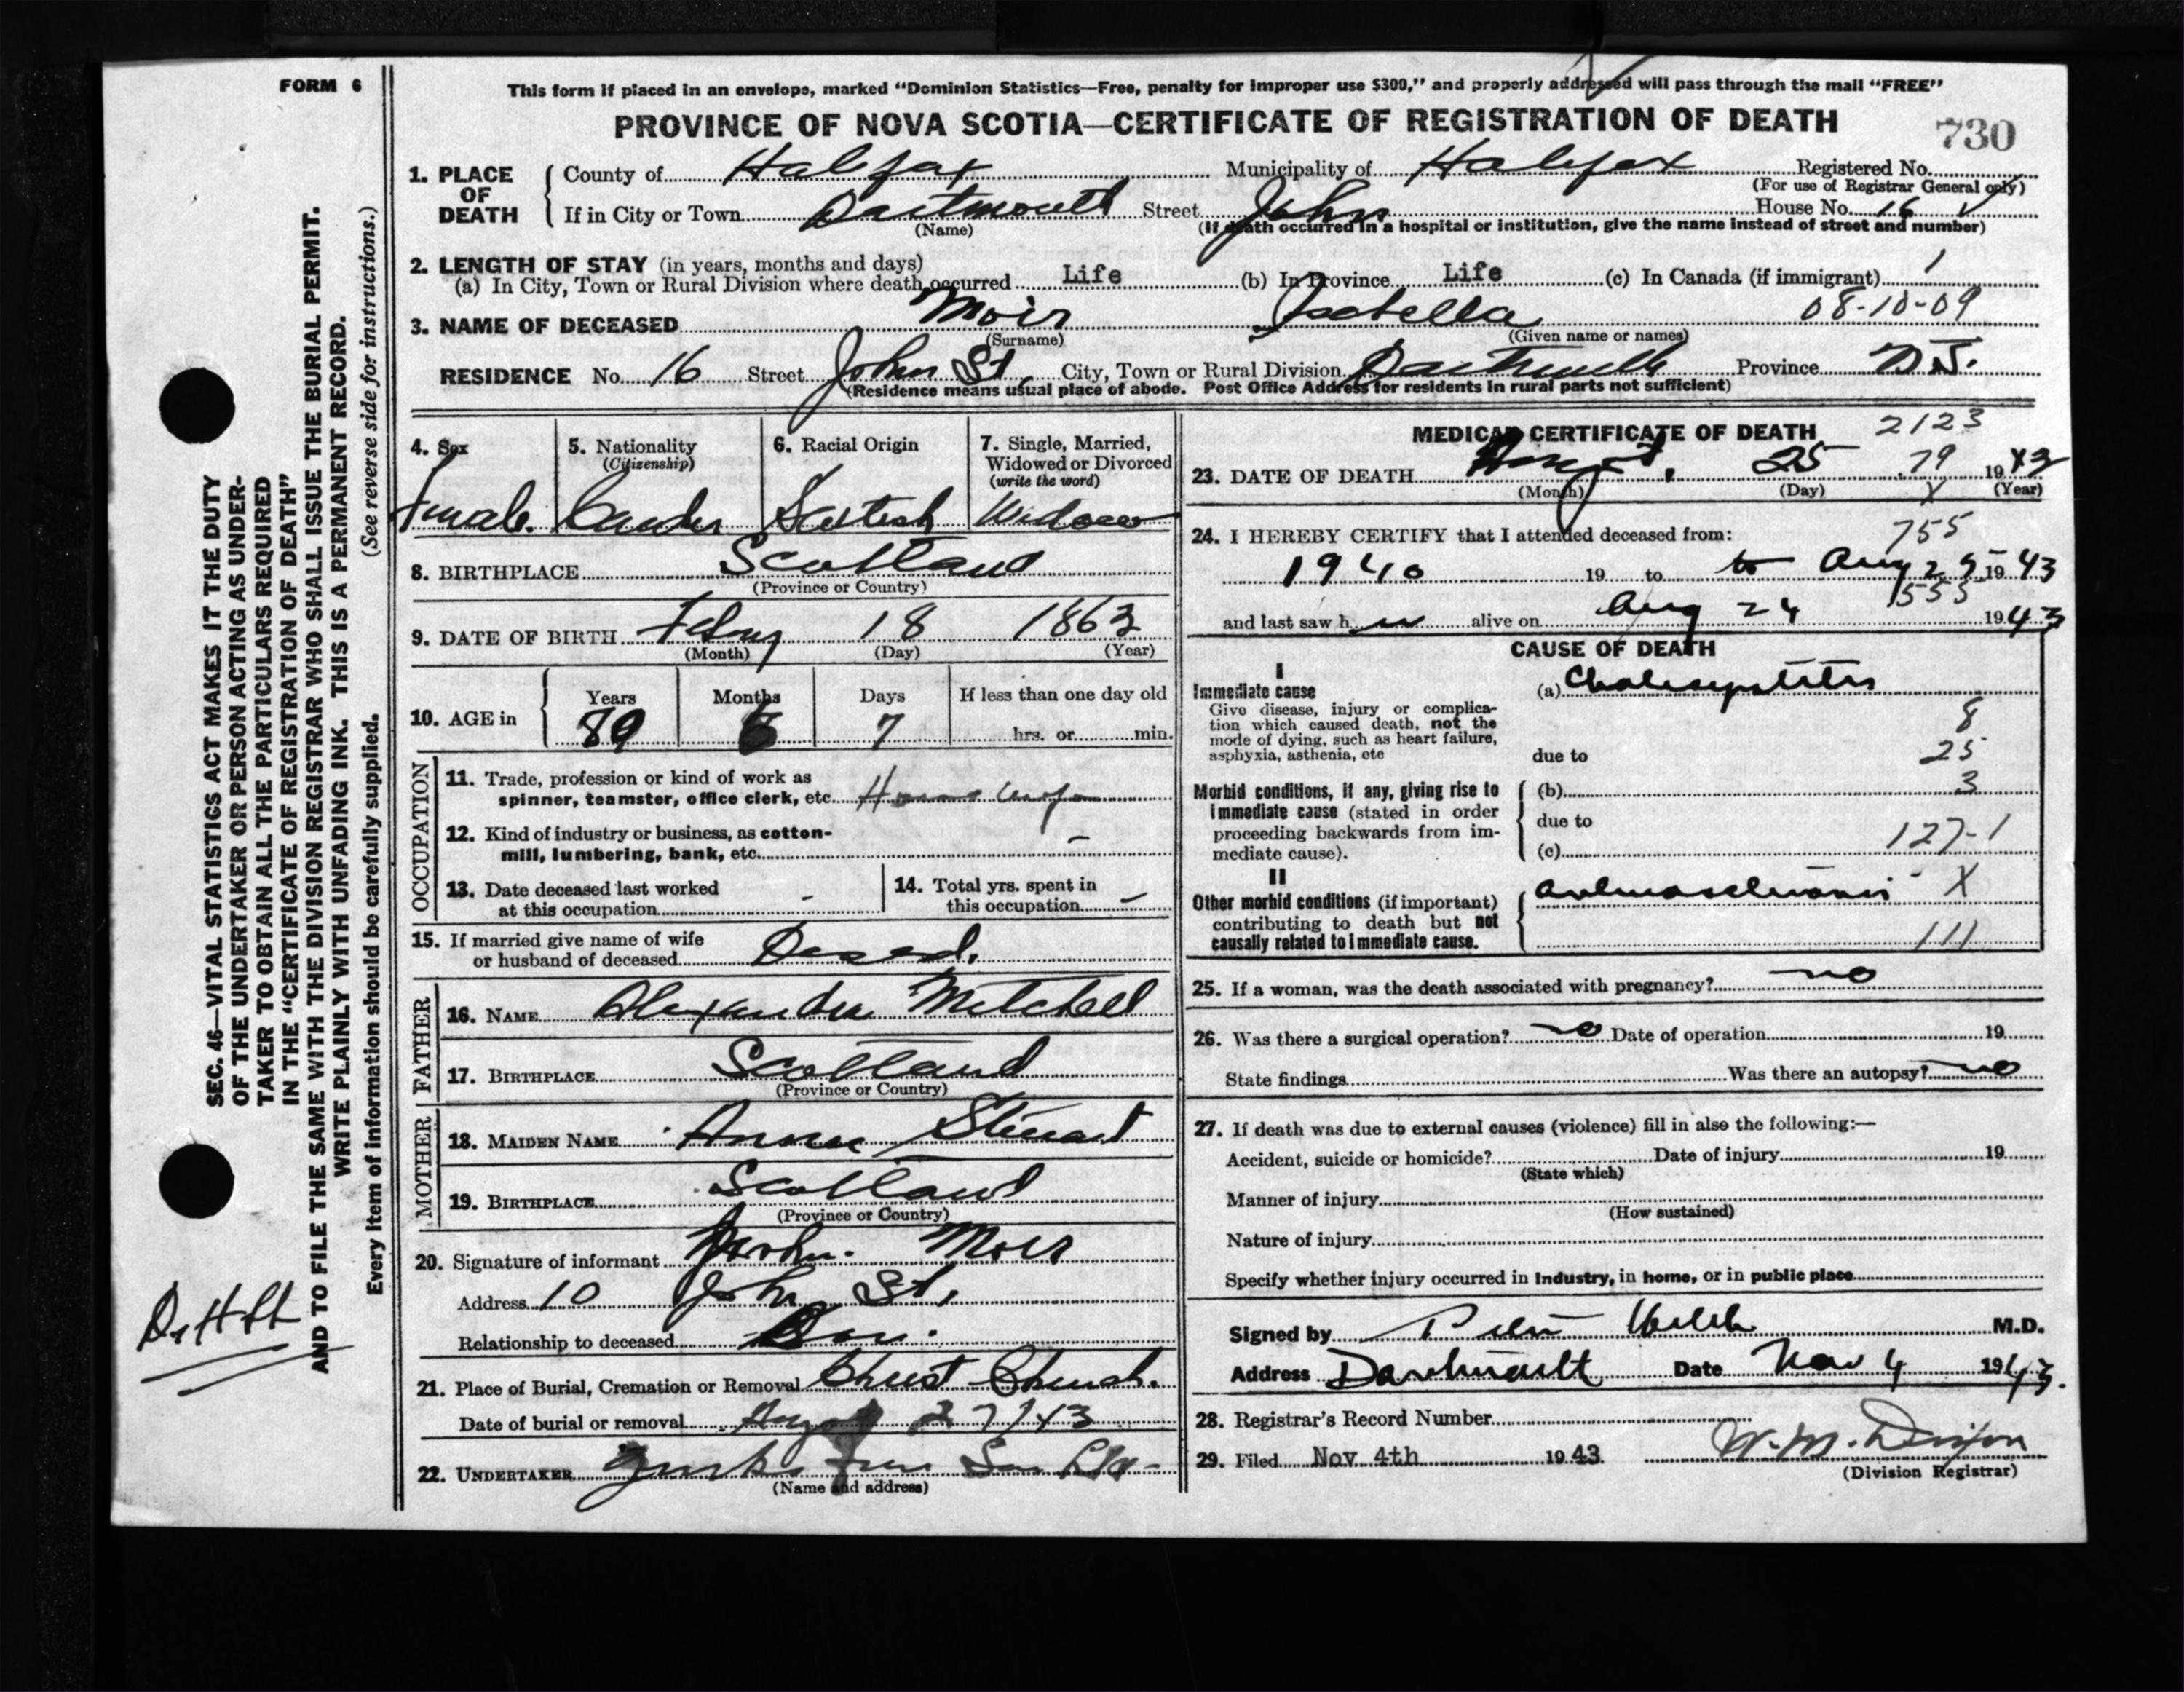 FORM 6
This form if placed in an envelope, marked "Dominion Statistics—Free, penalty for improper use $300," and properly addressed will pass through the mail "FREE"
PROVINCE OF NOVA SCOTIA—CERTIFICATE OF REGISTRATION OF DEATH
730
1. PLACE OF DEATH
County of Halifax Municipality of Halifax Registered No.
(For use of Registrar General only)
If in City or Town Dartmouth Street John House No. 16
(Name) (If death occurred in a hospital or institution, give the name instead of street and number)
2. LENGTH OF STAY (in years, months and days)
(a) In City, Town or Rural Division where death occurred Life (b) In Province Life (c) In Canada (if immigrant)
3. NAME OF DECEASED Moir Isabella 08-10-09
(Surname) (Given name or names)
RESIDENCE No. 16 Street John St. City, Town or Rural Division Dartmouth Province N.S.
(Residence means usual place of abode. Post Office Address for residents in rural parts not sufficient)
4. Sex
Female
5. Nationality
(Citizenship)
6. Racial Origin
Scotish
7. Single, Married, Widowed or Divorced
(write the word)
Widow
8. BIRTHPLACE Scotland
(Province or Country)
9. DATE OF BIRTH Febry 18 1863
(Month) (Day) (Year)
10. AGE in
Years Months Days If less than one day old
80 6 7 hrs. or min.
OCCUPATION
11. Trade, profession or kind of work as
spinner, teamster, office clerk, etc. House wife
12. Kind of industry or business, as cotton-
mill, lumbering, bank, etc. –
13. Date deceased last worked
at this occupation -
14. Total yrs. spent in
this occupation –
15. If married give name of wife
or husband of deceased
FATHER
16. NAME Alexander Mitchell
17. BIRTHPLACE Scotland
(Province or Country)
MOTHER
18. MAIDEN NAME Annie Stewart
19. BIRTHPLACE Scotland
(Province or Country)
20. Signature of informant John Moir
Address 10 John St.
Relationship to deceased Son.
21. Place of Burial, Cremation or Removal Christ Church.
Date of burial or removal August 27/43
22. UNDERTAKER
(Name and address)
MEDICAL CERTIFICATE OF DEATH 2123
23. DATE OF DEATH August 25 79 1943
(Month) (Day) (Year)
24. I HEREBY CERTIFY that I attended deceased from: 755
1940 19 to to Aug 25 1943
555
and last saw h alive on Aug 24 1943
CAUSE OF DEATH
I
Immediate cause
Give disease, injury or complica-
tion which caused death, not the
mode of dying, such as heart failure,
asphyxia, asthenia, etc
(a) Cholecystitis
8
due to 25
Morbid conditions, if any, giving rise to
immediate cause (stated in order
proceeding backwards from im-
mediate cause).
(b) 3
due to
127-1
(c)
II
Other morbid conditions (if important)
contributing to death but not
causally related to immediate cause.
arteriosclerosis X
111
25. If a woman, was the death associated with pregnancy? no
26. Was there a surgical operation? no Date of operation 19
State findings Was there an autopsy? no
27. If death was due to external causes (violence) fill in also the following:—
Accident, suicide or homicide? Date of injury 19
(State which)
Manner of injury
(How sustained)
Nature of injury
Specify whether injury occurred in industry, in home, or in public place
Signed by M.D.
Address Dartmouth Date Nov 4 1943.
28. Registrar's Record Number
29. Filed Nov 4th 1943.
(Division Registrar)
SEC. 46—VITAL STATISTICS ACT MAKES IT THE DUTY
OF THE UNDERTAKER OR PERSON ACTING AS UNDER-
TAKER TO OBTAIN ALL THE PARTICULARS REQUIRED
IN THE "CERTIFICATE OF REGISTRATION OF DEATH"
AND TO FILE THE SAME WITH THE DIVISION REGISTRAR WHO SHALL ISSUE THE BURIAL PERMIT.
WRITE PLAINLY WITH UNFADING INK. THIS IS A PERMANENT RECORD.
Every item of information should be carefully supplied. (See reverse side for instructions.)